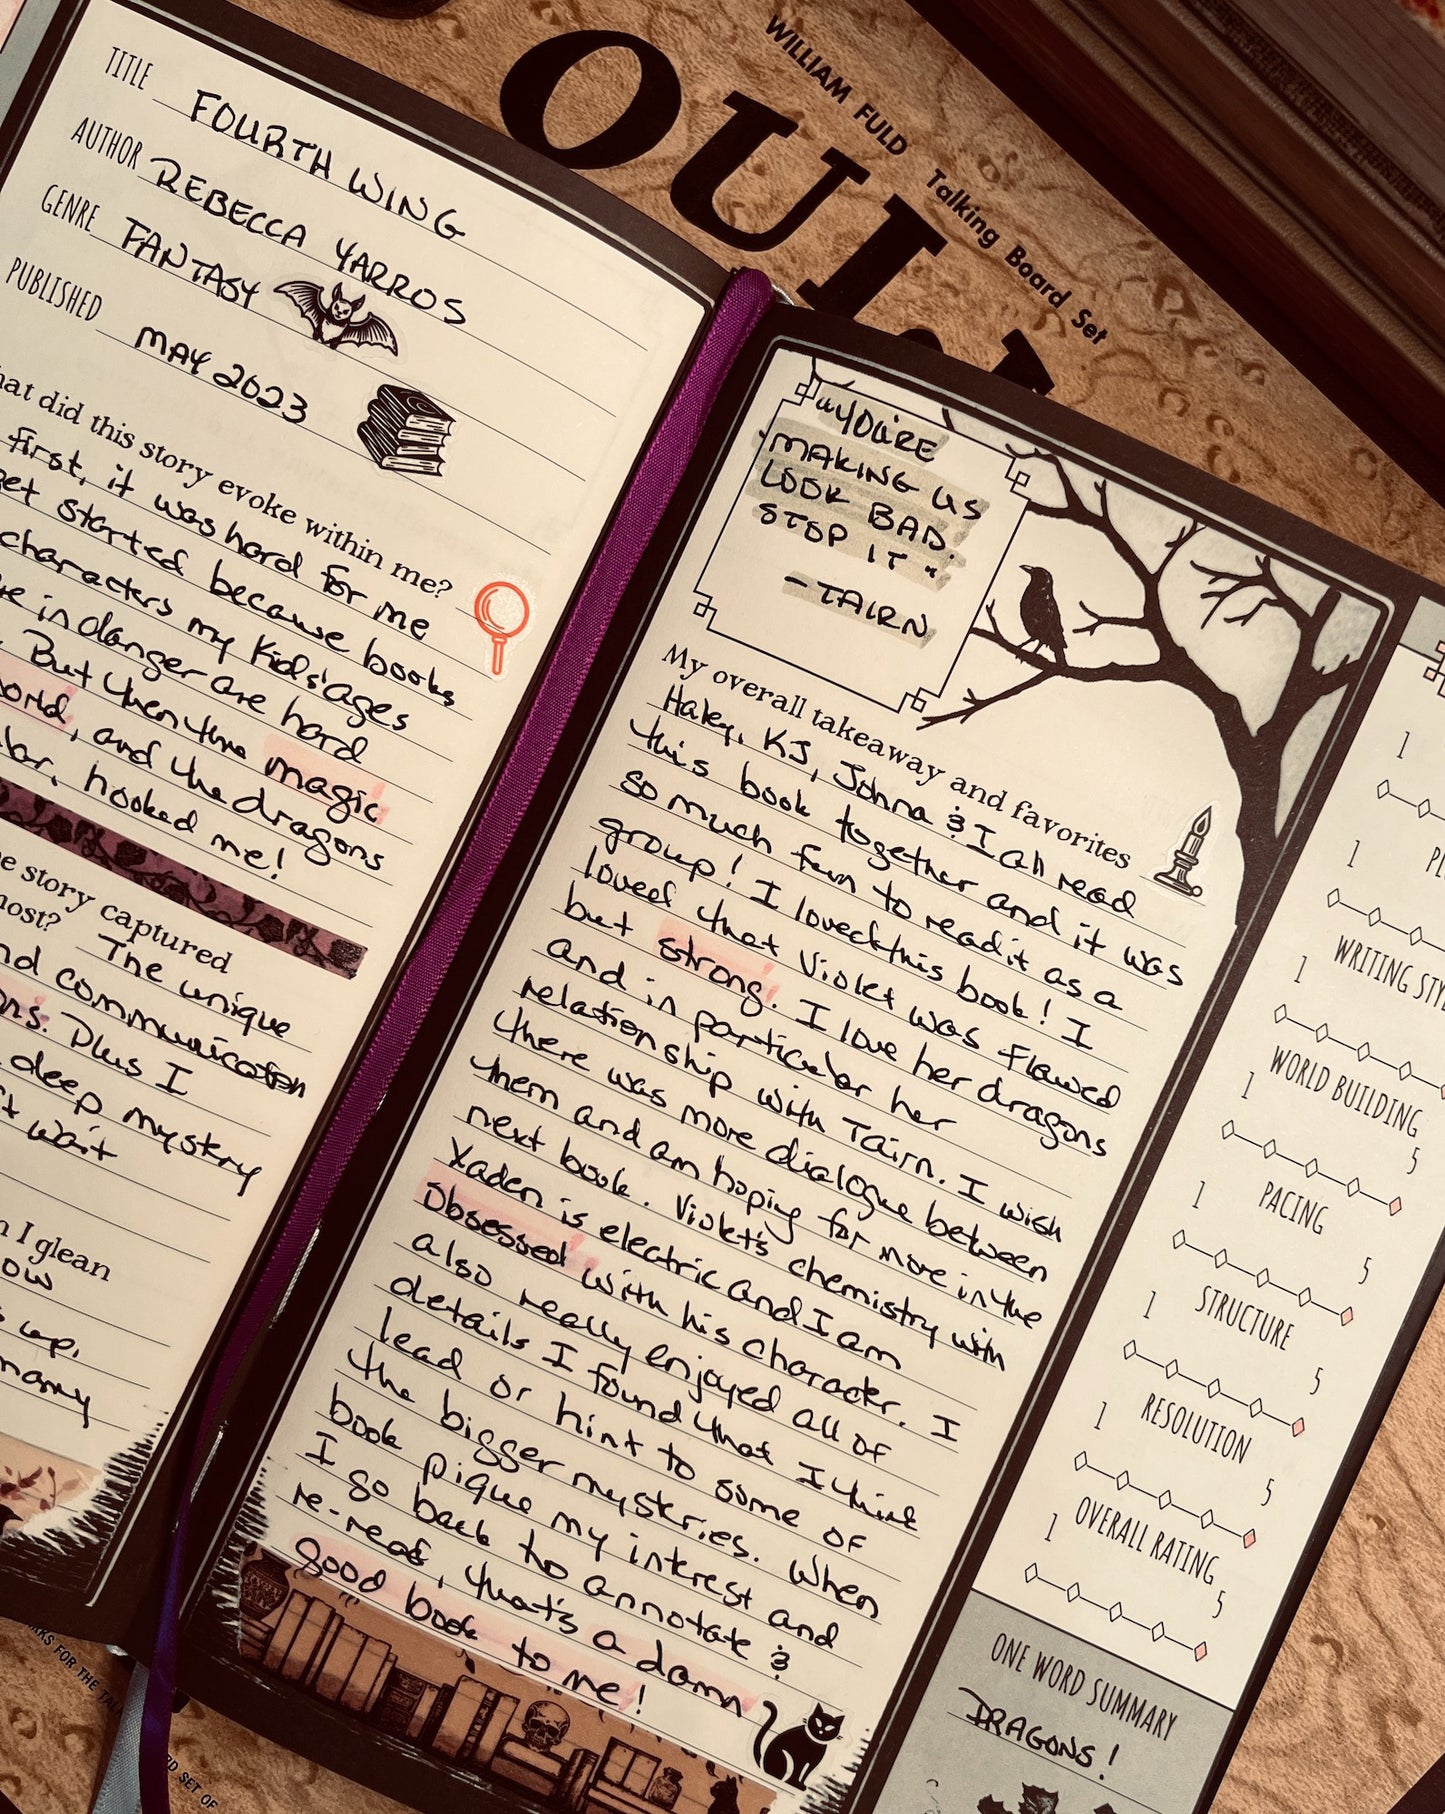 WILLIAM FULD Talking Board Set
OUI
TITLE FOURTH WING
AUTHOR REBECCA YARROS
GENRE FANTASY
PUBLISHED MAY 2023
hat did this story evoke within me?
first, it was hard for me
get started because books
characters my kids' ages
in danger are hard
. But then the magic
world, and the dragons
hooked me!
e story captured
most? The unique
nd communication
ons. Plus I
deep mystery
't wait
n I glean
ow
up.
many
"YOU'RE
MAKING US
LOOK BAD.
STOP IT"
-TAIRN
My overall takeaway and favorites
Haley, KJ, Johna & I all read
this book together and it was
so much fun to read it as a
group! I loved this book! I
loved that Violet was flawed
but strong. I love her dragons
and in particular her
relationship with Tairn. I wish
there was more dialogue between
them and am hoping for more in the
next book. Violet's chemistry with
Xaden is electric and I am
obsessed with his character. I
also really enjoyed all of
details I found that I think
lead or hint to some of
the bigger mysteries. When
book pique my interest and
I go back to annotate &
re-read, that's a damn
good book to me!
1
1
PL
1 WRITING STY
1 WORLD BUILDING 5
1 PACING 5
1 STRUCTURE 5
1 RESOLUTION 5
1 OVERALL RATING 5
ONE WORD SUMMARY
DRAGONS!
RKS FOR THE TAL
RD SET OF